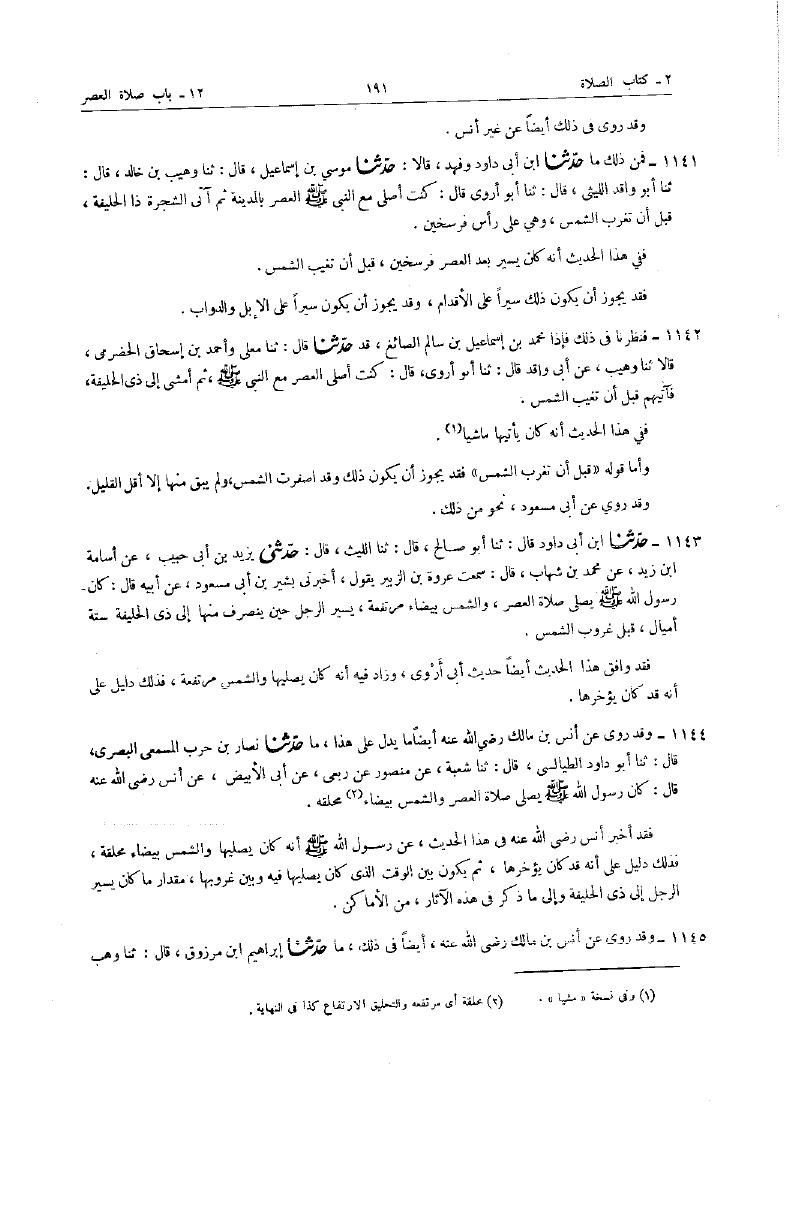 ٢ - كتاب الصلاة ١٩١ ١٢ - باب صلاة العصر
وقد روى فى ذلك أيضاً عن غير أنس .
١١٤١ - فمن ذلك ما حدّثنا ابن أبى داود وفهد ، قالا : حدّثنا موسي بن إسماعيل ، قال : ثنا وهيب بن خالد ، قال :
ثنا أبو واقد الليثى ، قال : ثنا أبو أروى قال : كنت أصلى مع النبى ﷺ العصر بالمدينة ثم آتى الشجرة ذا الحليفة ،
قبل أن تغرب الشمس ، وهي على رأس فرسخين .
ففي هذا الحديث أنه كان يسير بعد العصر فرسخين ، قبل أن تغيب الشمس .
فقد يجوز أن يكون ذلك سيراً على الأقدام ، وقد يجوز أن يكون سيراً على الإبل والدواب .
١١٤٢ - فنظرنا فى ذلك فإذا محمد بن إسماعيل بن سالم الصائغ ، قد حدّثنا قال : ثنا معلى وأحمد بن إسحاق الحضرمى ،
قالا ثنا وهيب ، عن أبى واقد قال : ثنا أبو أروى، قال : كنت أصلى العصر مع النبى ﷺ ،ثم أمشى إلى ذى الحليفة،
فآتيهم قبل أن تغيب الشمس .
ففي هذا الحديث أنه كان يأتيها ماشيا(١) .
وأما قوله «قبل أن تغرب الشمس» فقد يجوز أن يكون ذلك وقد اصفرت الشمس،ولم يبق منها إلا أقل القليل.
وقد روي عن أبى مسعود ، نحو من ذلك .
١١٤٣ - حدّثنا ابن أبى داود قال : ثنا أبو صالح ، قال : ثنا الليث ، قال : حدّثنى يزيد بن أبى حبيب ، عن أسامة
ابن زيد ، عن محمد بن شهاب ، قال : سمعت عروة بن الزبير يقول ، أخبرنى بشير بن أبى مسعود ، عن أبيه قال : كان
رسول الله ﷺ يصلى صلاة العصر ، والشمس بيضاء مرتفعة ، يسير الرجل حين ينصرف منها إلى ذى الحليفة ستة
أميال ، قبل غروب الشمس .
فقد وافق هذا الحديث أيضاً حديث أبى أَرْوى ، وزاد فيه أنه كان يصليها والشمس مرتفعة ، فذلك دليل على
أنه قد كان يؤخرها .
١١٤٤ - وقد روى عن أنس بن مالك رضى الله عنه أيضاً ما يدل على هذا ، ما حدّثنا نصار بن حرب المسمعى البصرى،
قال : ثنا أبو داود الطيالسى ، قال : ثنا شعبة ، عن منصور عن ربعى ، عن أبى الأبيض ، عن أنس رضى الله عنه
قال : كان رسول الله ﷺ يصلى صلاة العصر والشمس بيضاء(٢) محلقه .
فقد أخبر أنس رضى الله عنه فى هذا الحديث ، عن رسول الله ﷺ أنه كان يصليها والشمس بيضاء محلقة ،
فذلك دليل على أنه قد كان يؤخرها ، ثم يكون بين الوقت الذى كان يصليها فيه وبين غروبها ، مقدار ما كان يسير
الرجل إلى ذى الحليفة وإلى ما ذكر فى هذه الآثار ، من الأماكن .
١١٤٥ - وقد روى عن أنس بن مالك رضى الله عنه ، أيضاً فى ذلك ، ما حدّثنا إبراهيم ابن مرزوق ، قال : ثنا وهب
(١) وفى نسخة « مشيا » . (٢) محلقة أى مرتفعه والتحليق الارتفاع كذا فى النهاية .